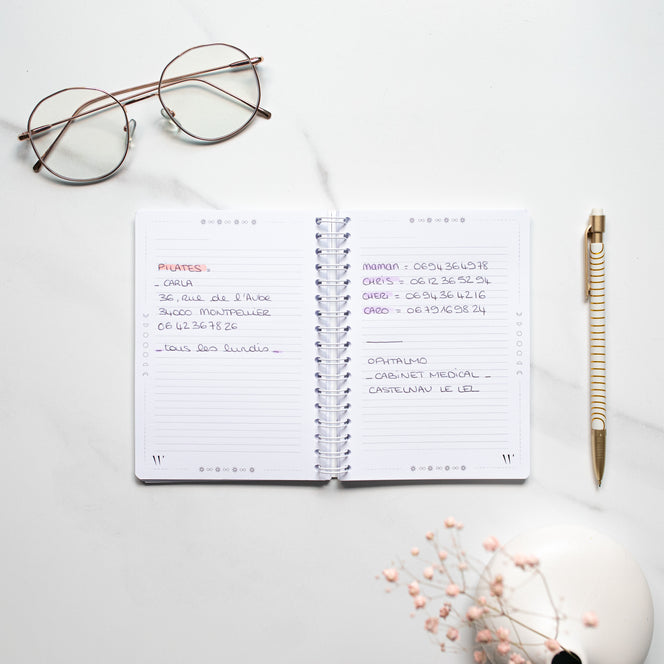 PILATES :
_ CARLA
36, Rue de l'Aube
34000 MONTPELLIER
06 42 36 78 26
_ tous les lundis _
W
maman = 0694364978
CHRIS = 0612365294
CHERI = 0694364216
CARO = 0679169824
OPHTALMO
_ CABINET MEDICAL _
CASTELNAU LE LEZ
W